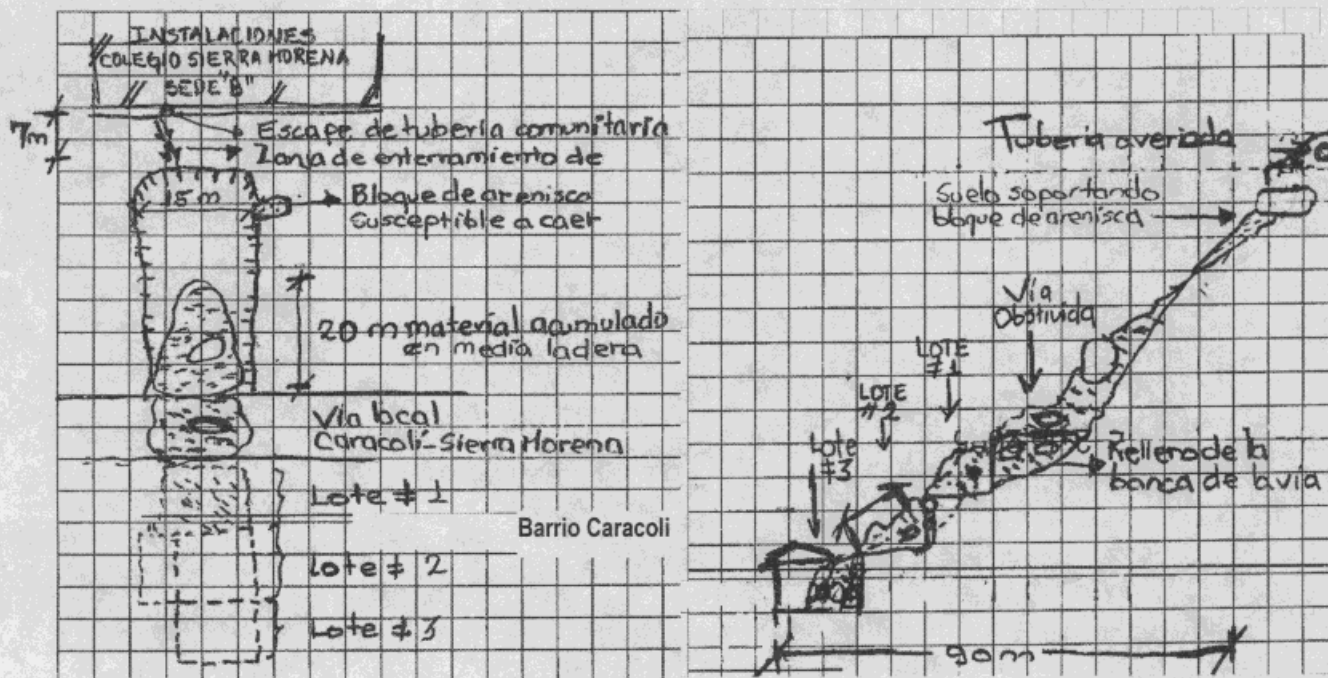 INSTALACIONES
COLEGIO SIERRA MORENA
SEDE "B"
7m
Escape de tubería comunitaria
Zanja de enterramiento de
15 m
Bloque de arenisca
susceptible a caer
20 m material acumulado
en media ladera
Vía local
Caracolí-Sierra Morena
Lote # 1
Barrio Caracoli
Lote # 2
Lote # 3
Tubería averiada
Suelo soportando
bloque de arenisca
Vía
Obstruida
LOTE
#1
LOTE
#2
Lote
#3
Relleno de la
banca de la vía
90 m